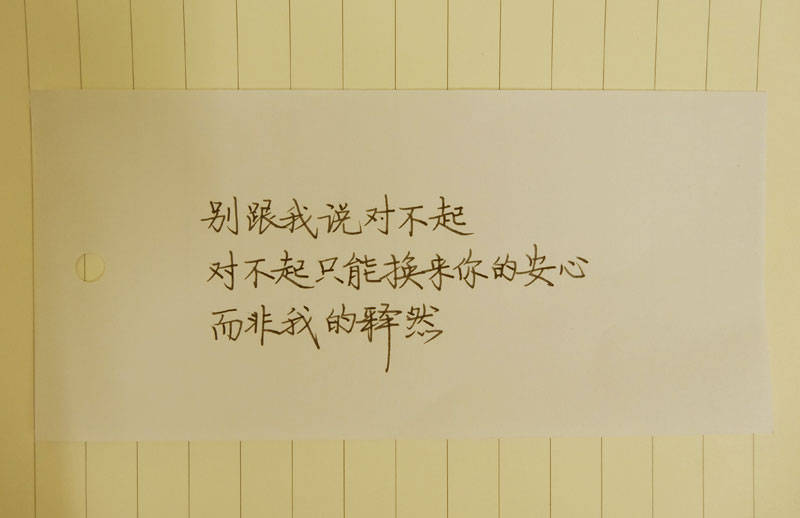 别跟我说对不起
对不起只能换来你的安心
而非我的释然